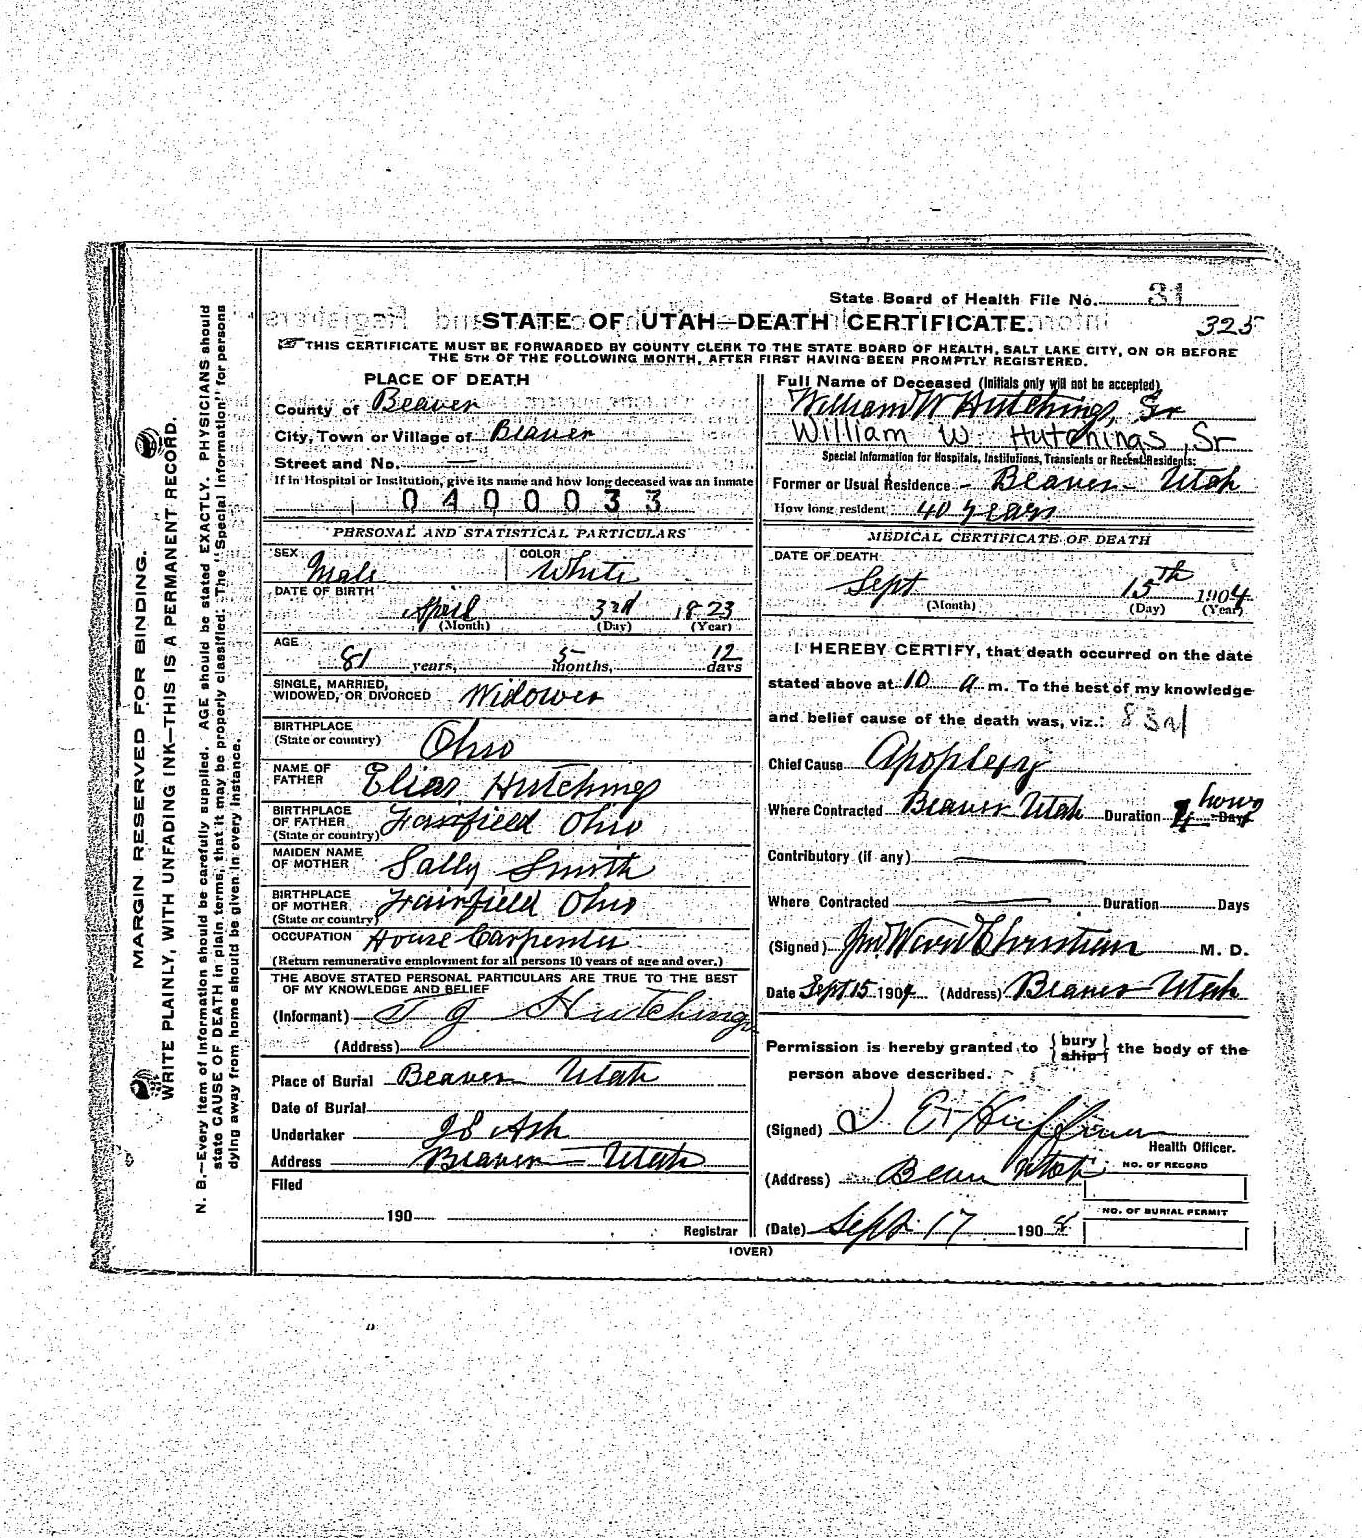 State Board of Health File No. 31
325
STATE OF UTAH—DEATH CERTIFICATE.
THIS CERTIFICATE MUST BE FORWARDED BY COUNTY CLERK TO THE STATE BOARD OF HEALTH, SALT LAKE CITY, ON OR BEFORE
THE 5TH OF THE FOLLOWING MONTH, AFTER FIRST HAVING BEEN PROMPTLY REGISTERED.
MARGIN RESERVED FOR BINDING.
WRITE PLAINLY, WITH UNFADING INK—THIS IS A PERMANENT RECORD.
N. B.—Every item of information should be carefully supplied. AGE should be stated EXACTLY. PHYSICIANS should
state CAUSE OF DEATH in plain terms, that it may be properly classified. The "Special Information" for persons
dying away from home should be given in every instance.
PLACE OF DEATH
County of Beaver
City, Town or Village of Beaver
Street and No. —
If in Hospital or Institution, give its name and how long deceased was an inmate
0400033
PERSONAL AND STATISTICAL PARTICULARS
SEX Male COLOR White
DATE OF BIRTH
April 3rd 1823
(Month) (Day) (Year)
AGE
81 years, 5 months, 12 days
SINGLE, MARRIED,
WIDOWED, OR DIVORCED Widower
BIRTHPLACE
(State or country) Ohio
NAME OF
FATHER Elias Hutchings
BIRTHPLACE
OF FATHER
(State or country) Fairfield Ohio
MAIDEN NAME
OF MOTHER Sally Smith
BIRTHPLACE
OF MOTHER
(State or country) Fairfield Ohio
OCCUPATION House Carpenter
(Return remunerative employment for all persons 10 years of age and over.)
THE ABOVE STATED PERSONAL PARTICULARS ARE TRUE TO THE BEST
OF MY KNOWLEDGE AND BELIEF
(Informant) T J Hutchings
(Address)
Place of Burial Beaver Utah
Date of Burial
Undertaker Ash
Address Beaver — Utah
Filed
190
Registrar
Full Name of Deceased (Initials only will not be accepted)
William W Hutchings, Sr
William W. Hutchings, Sr
Special Information for Hospitals, Institutions, Transients or Recent Residents:
Former or Usual Residence - Beaver - Utah
How long resident 40 years
MEDICAL CERTIFICATE OF DEATH
DATE OF DEATH
Sept 15th 1904
(Month) (Day) (Year)
I HEREBY CERTIFY, that death occurred on the date
stated above at 10 a m. To the best of my knowledge
and belief cause of the death was, viz.:
Chief Cause Apoplexy
Where Contracted Beaver Utah Duration 4 hours Days
Contributory (if any) —
Where Contracted — Duration Days
(Signed) Jno. Ward Christian M. D.
Date Sept 15 1904 (Address) Beaver Utah
Permission is hereby granted to {bury ship} the body of the
person above described.
(Signed) Huffman
Health Officer.
(Address) Beaver Utah
NO. OF RECORD
NO. OF BURIAL PERMIT
(Date) Sept. 17 190
(OVER)